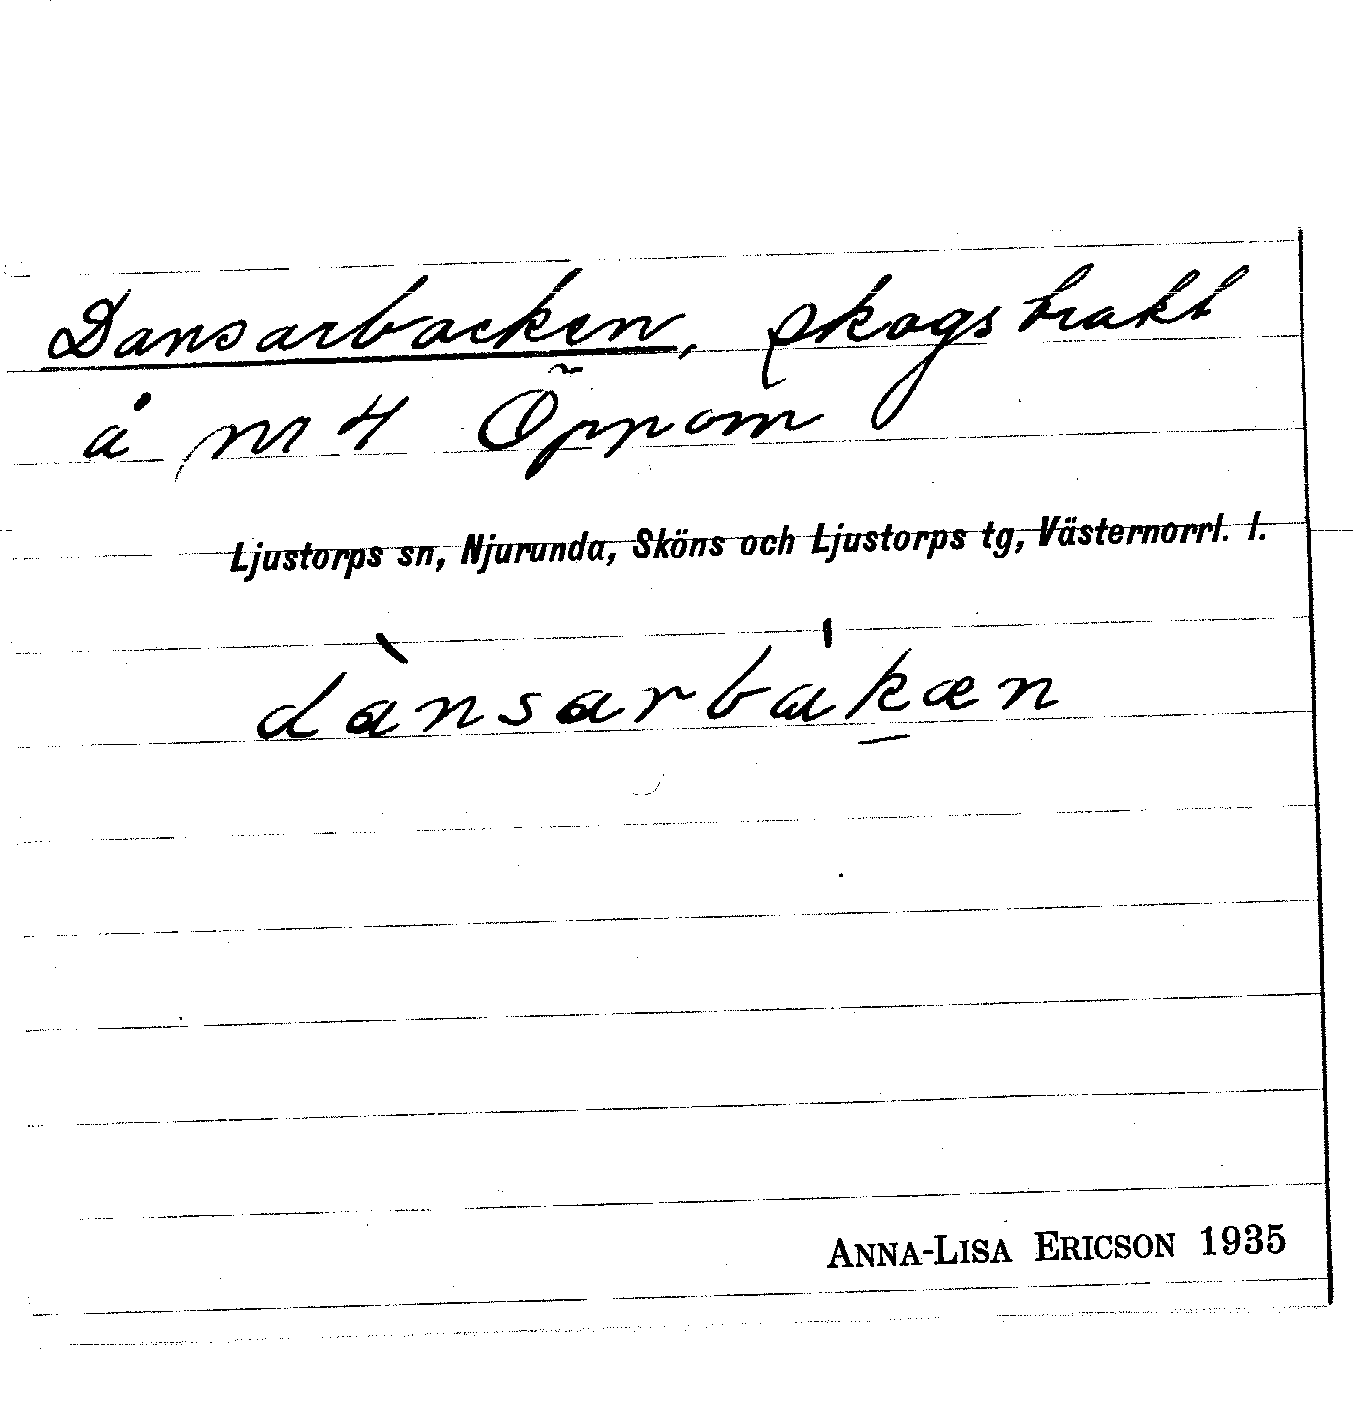 Dansarbacken, skogstrakt
å nr 4 Öppom
Ljustorps sn, Njurunda, Sköns och Ljustorps tg, Västernorrl. l.
dànsarbákæn
ANNA-LISA ERICSON 1935